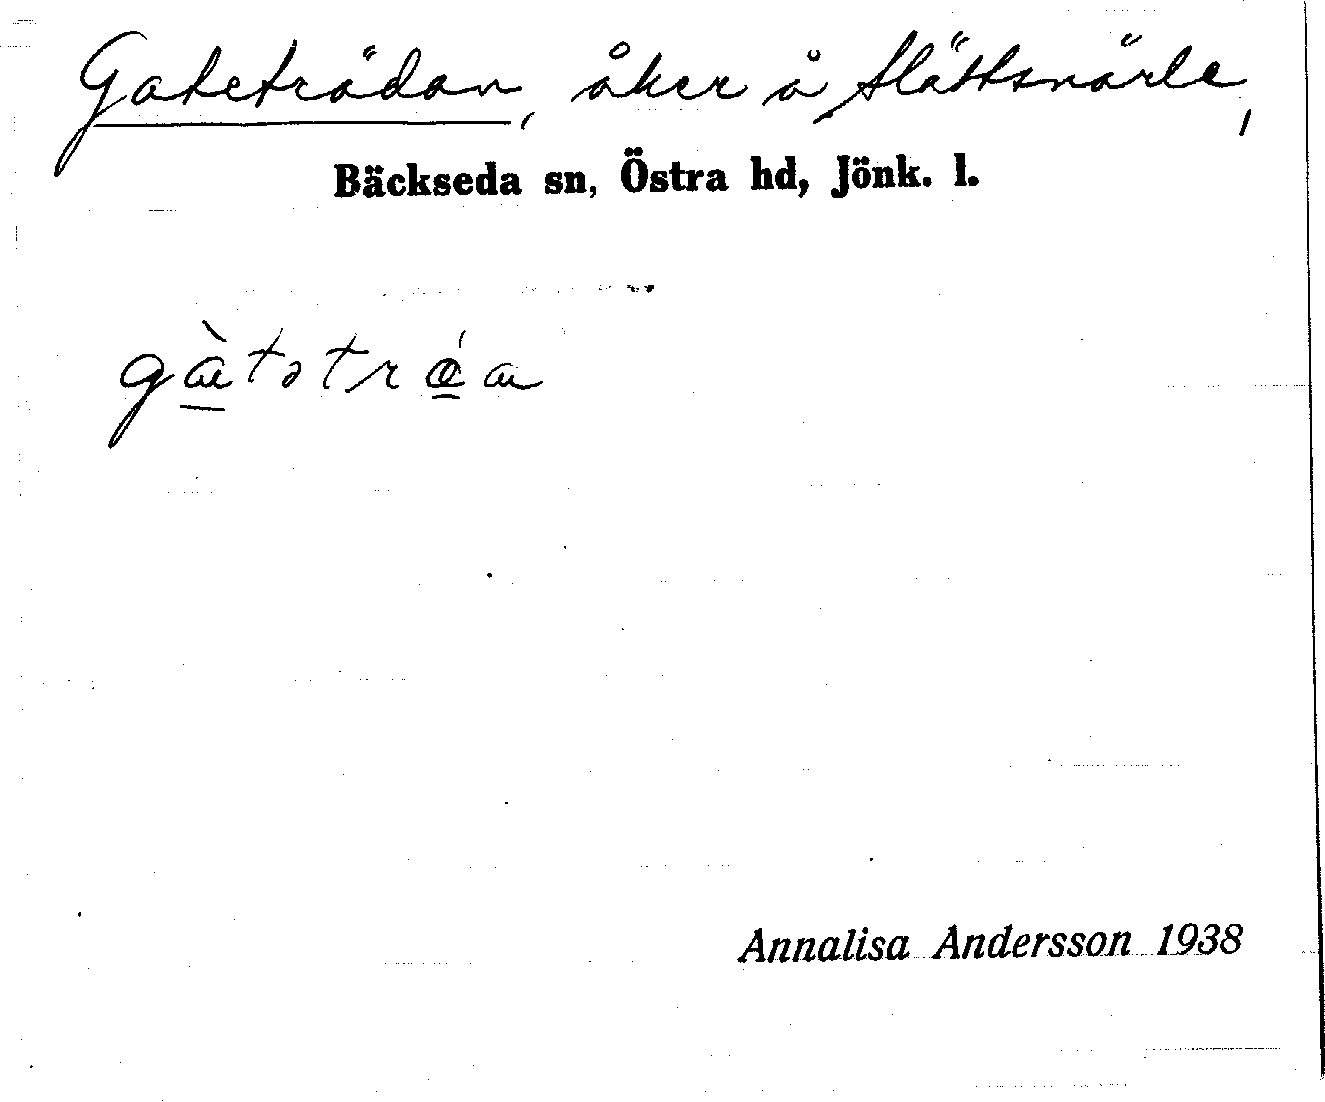 Gateträdan, åker å Slättsnärle,
Bäckseda sn, Östra hd, Jönk. l.
gàtətrǽa
Annalisa Andersson 1938